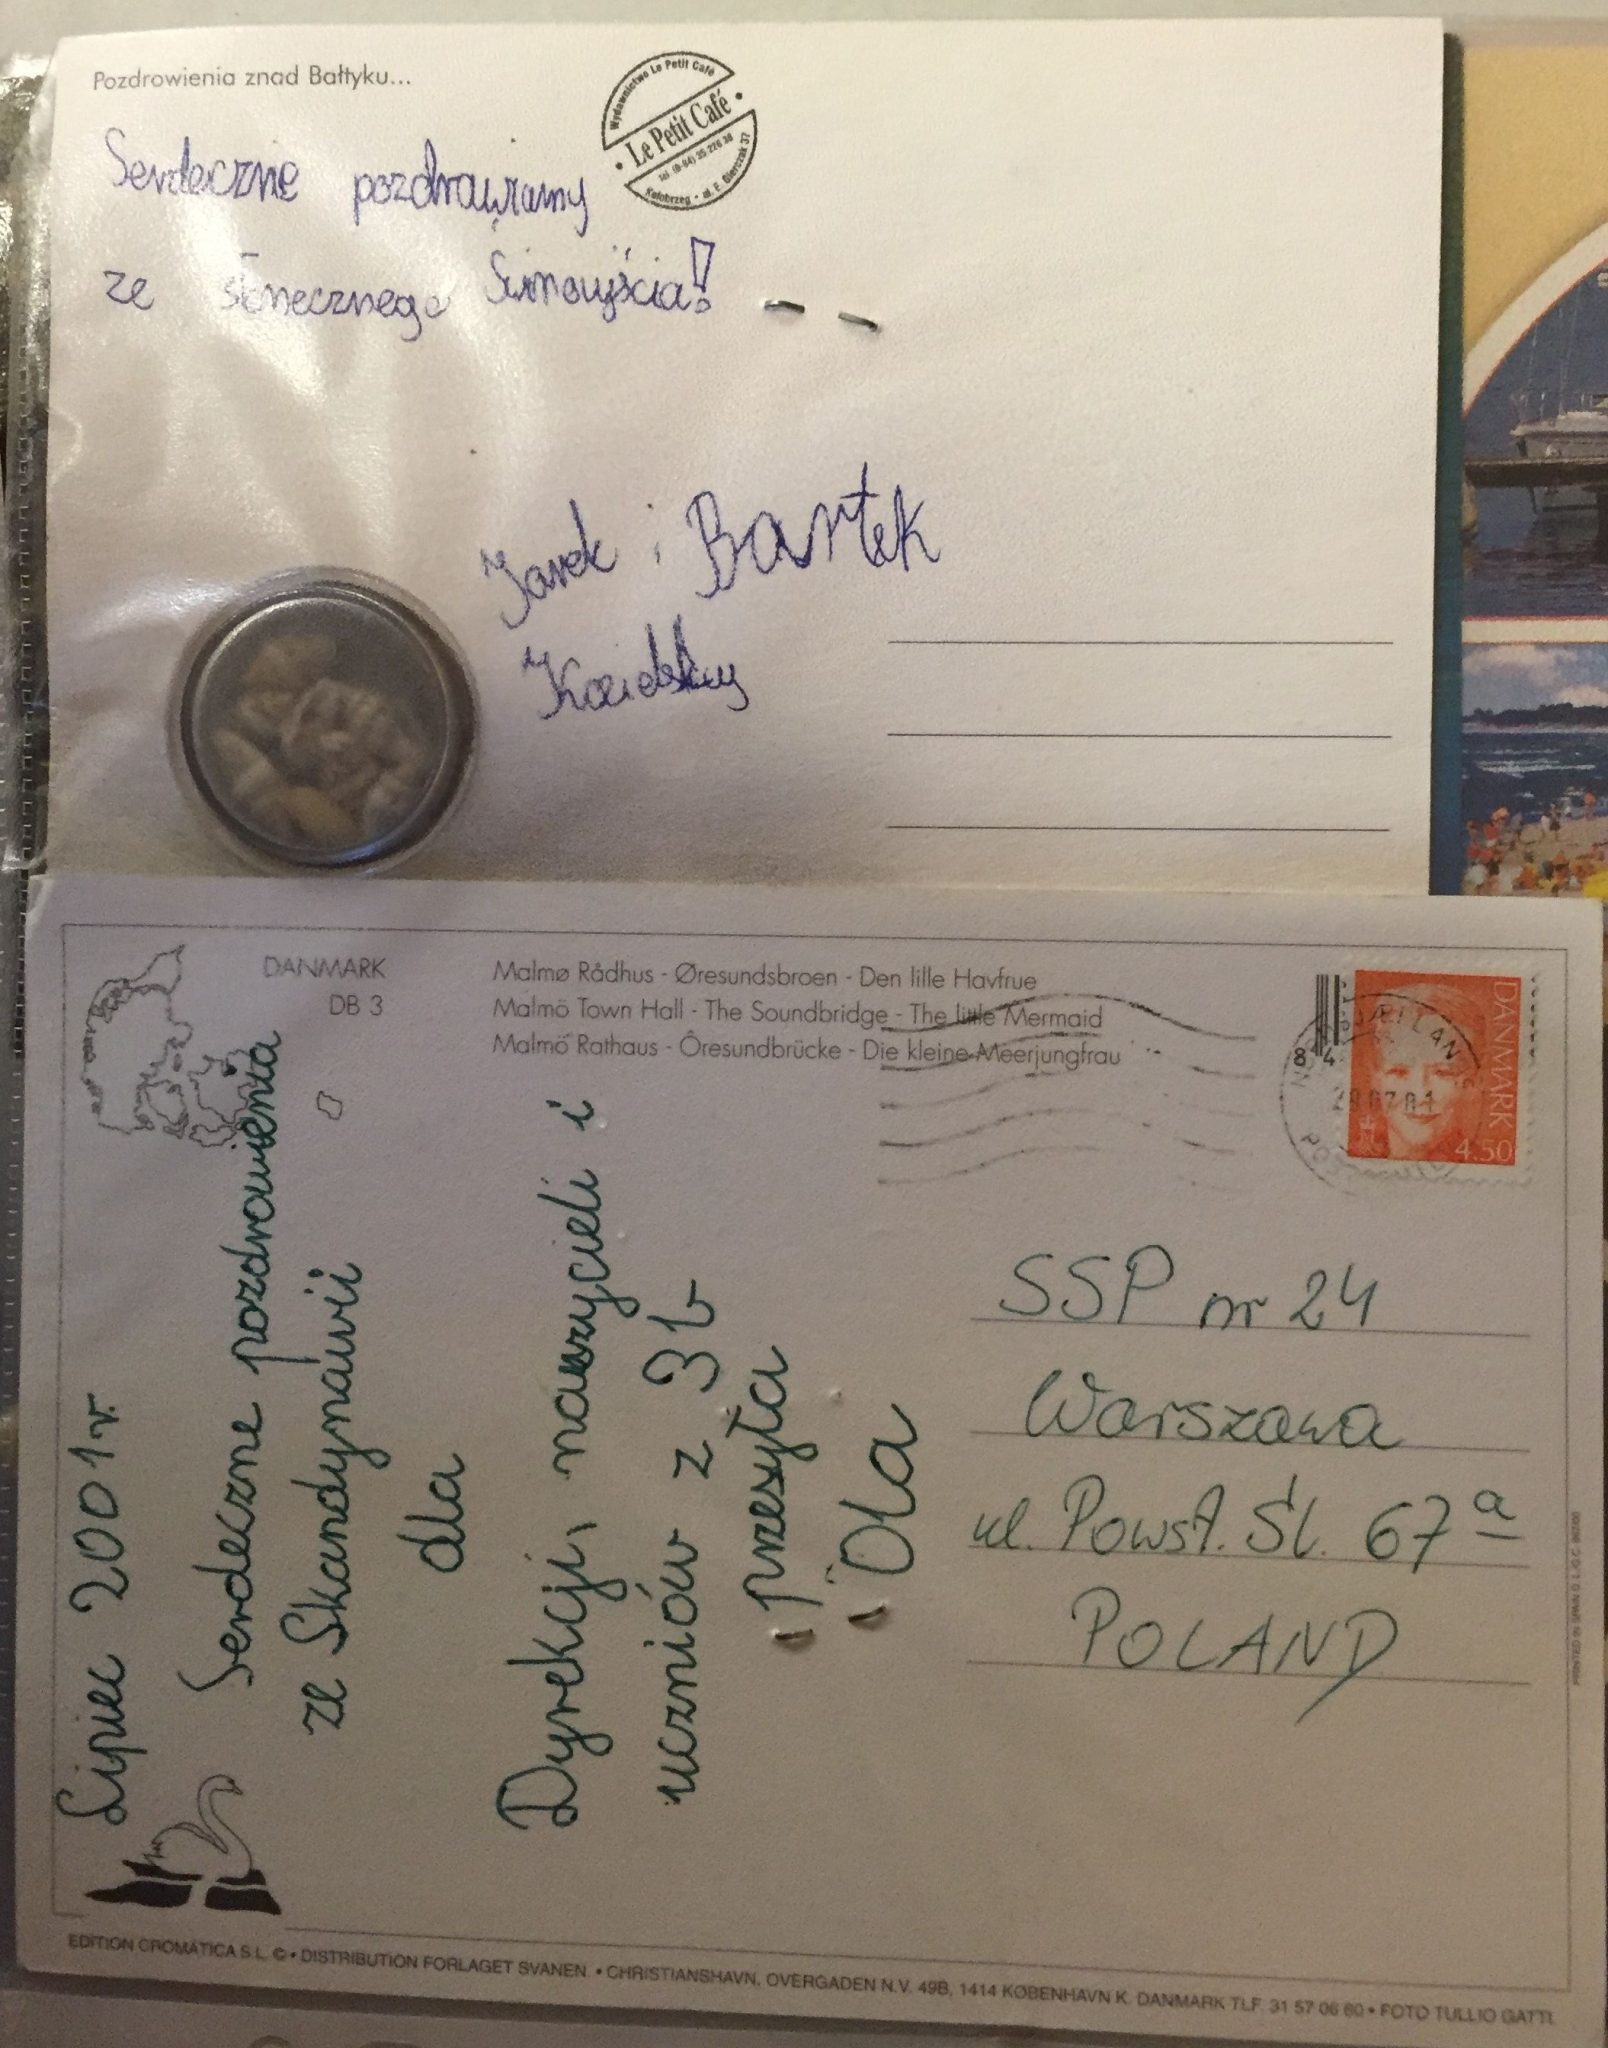 Pozdrowienia znad Bałtyku...
Wydawnictwo Le Petit Café
• Le Petit Café •
Kołobrzeg • ul. F. Gierczak 37
Serdecznie pozdrawiamy
ze słonecznego Świnoujścia!
Jarek i Bartek
DANMARK
DB 3
Malmø Rådhus - Øresundsbroen - Den lille Havfrue
Malmö Town Hall - The Soundbridge - The little Mermaid
Malmö Rathaus - Ôresundbrücke - Die kleine Meerjungfrau
DANMARK
4.50
84
Lipiec 2001 r.
Serdeczne pozdrowienia
ze Skandynawii
dla
Dyrekcji, nauczycieli i
uczniów z 3b
przesyła
Ola
SSP nr 24
Warszawa
ul. Powst. Śl. 67a
POLAND
EDITION CROMÁTICA S.L. © • DISTRIBUTION FORLAGET SVANEN • CHRISTIANSHAVN, OVERGADEN N.V. 49B, 1414 KØBENHAVN K. DANMARK TLF. 31 57 06 60 • FOTO TULLIO GATTI.